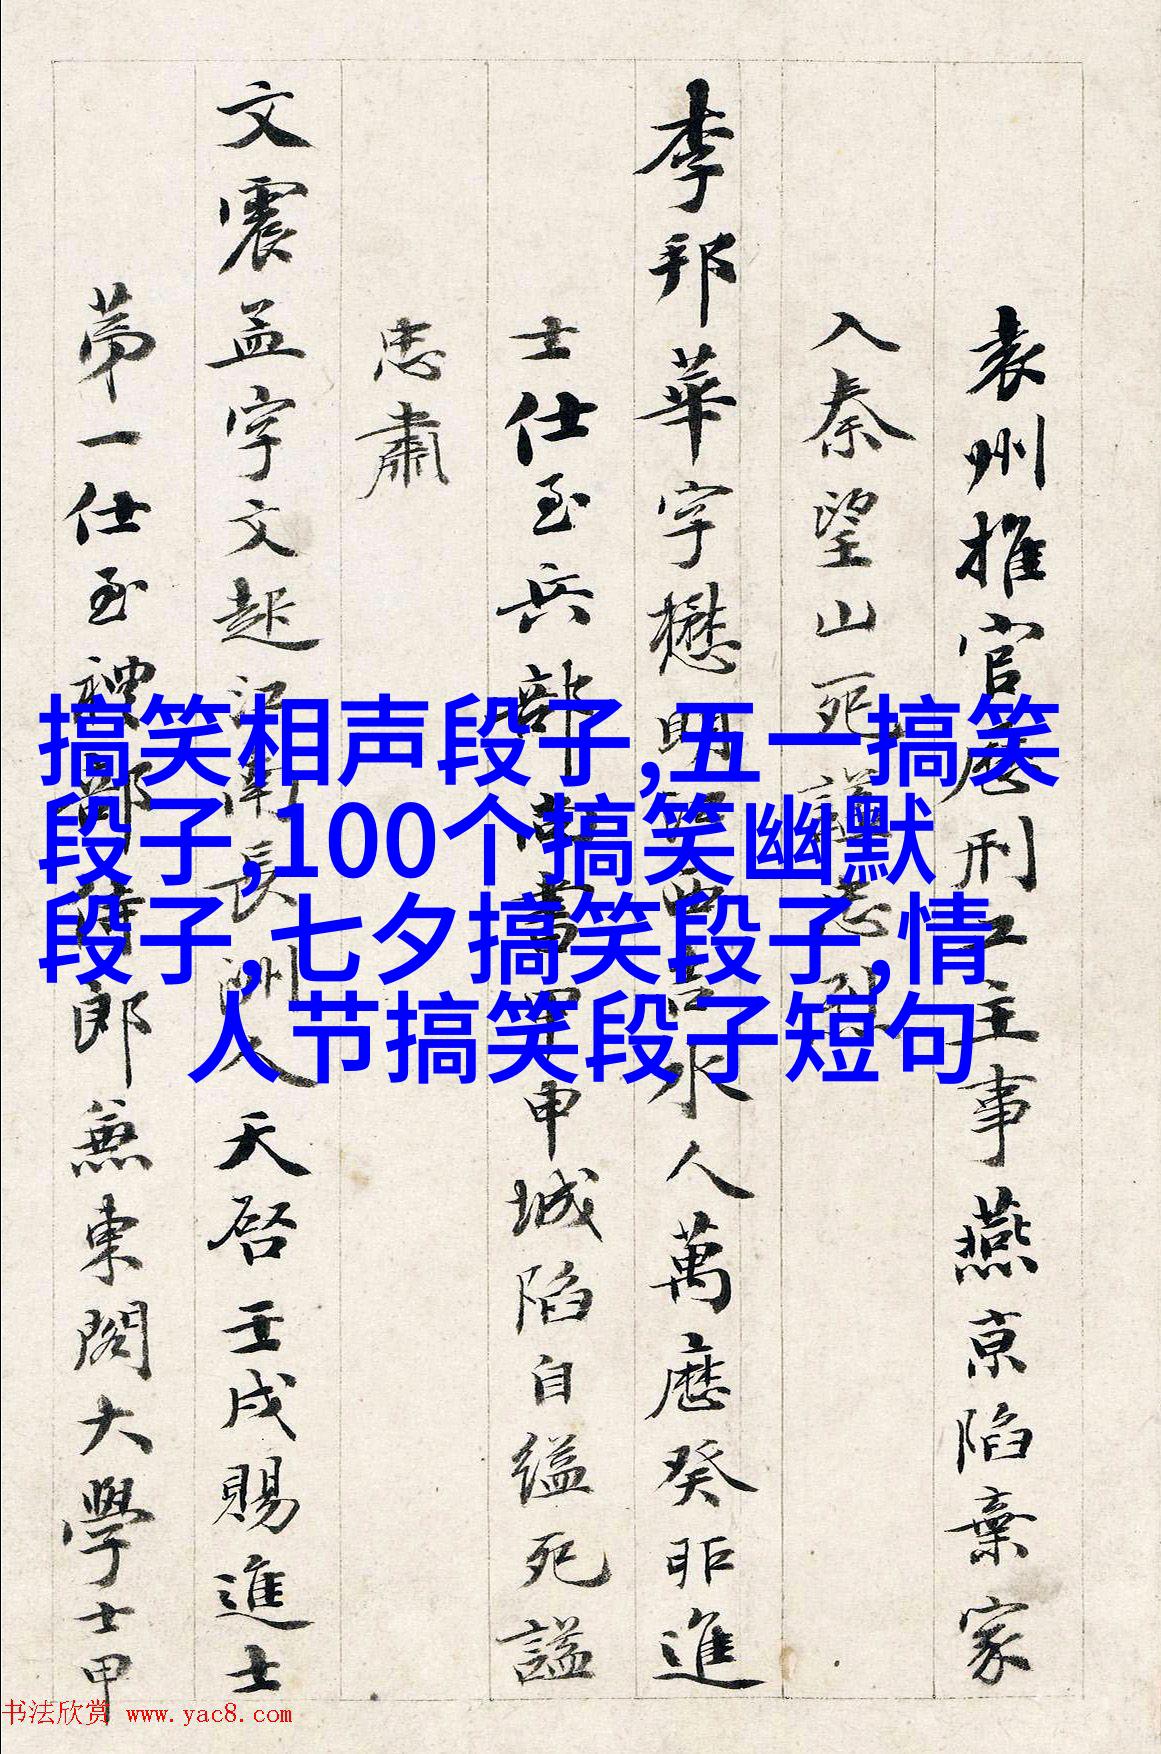 袁州推官歷刑工主事燕京陷棄家
入秦望山死謚忠烈
李邦華字懋明江西吉水人萬歷癸卯進
士仕至兵部尚書甲申城陷自縊死謚
忠肅
文震孟字文起江南長洲人天啓壬戌賜進士
第一仕至禮部侍郎兼東閣大學士甲
搞笑相声段子,五一搞笑
段子,100个搞笑幽默
段子,七夕搞笑段子,情
人节搞笑段子短句
书法欣赏 www.yac8.com